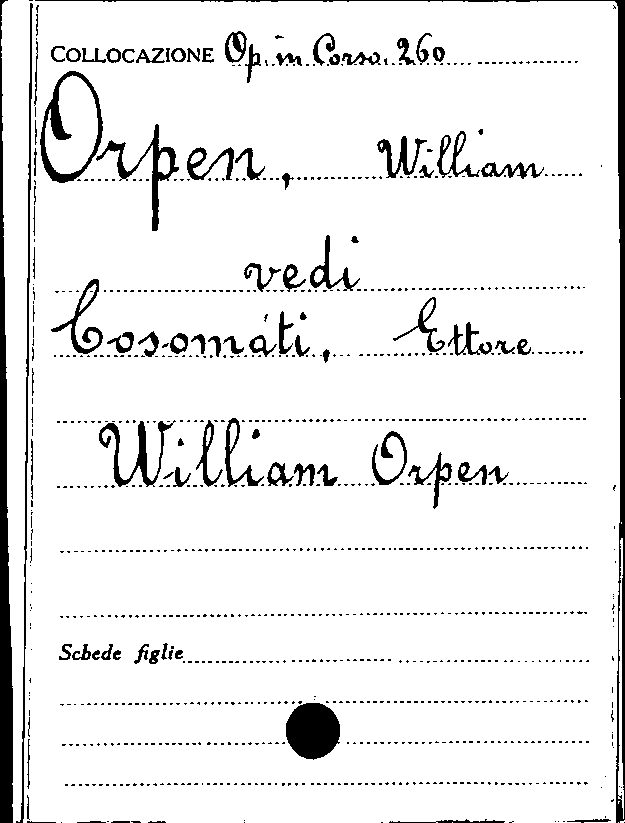 COLLOCAZIONE Op. in Corso. 260
Orpen, William
vedi
Cosomati, Ettore
William Orpen
Schede figlie